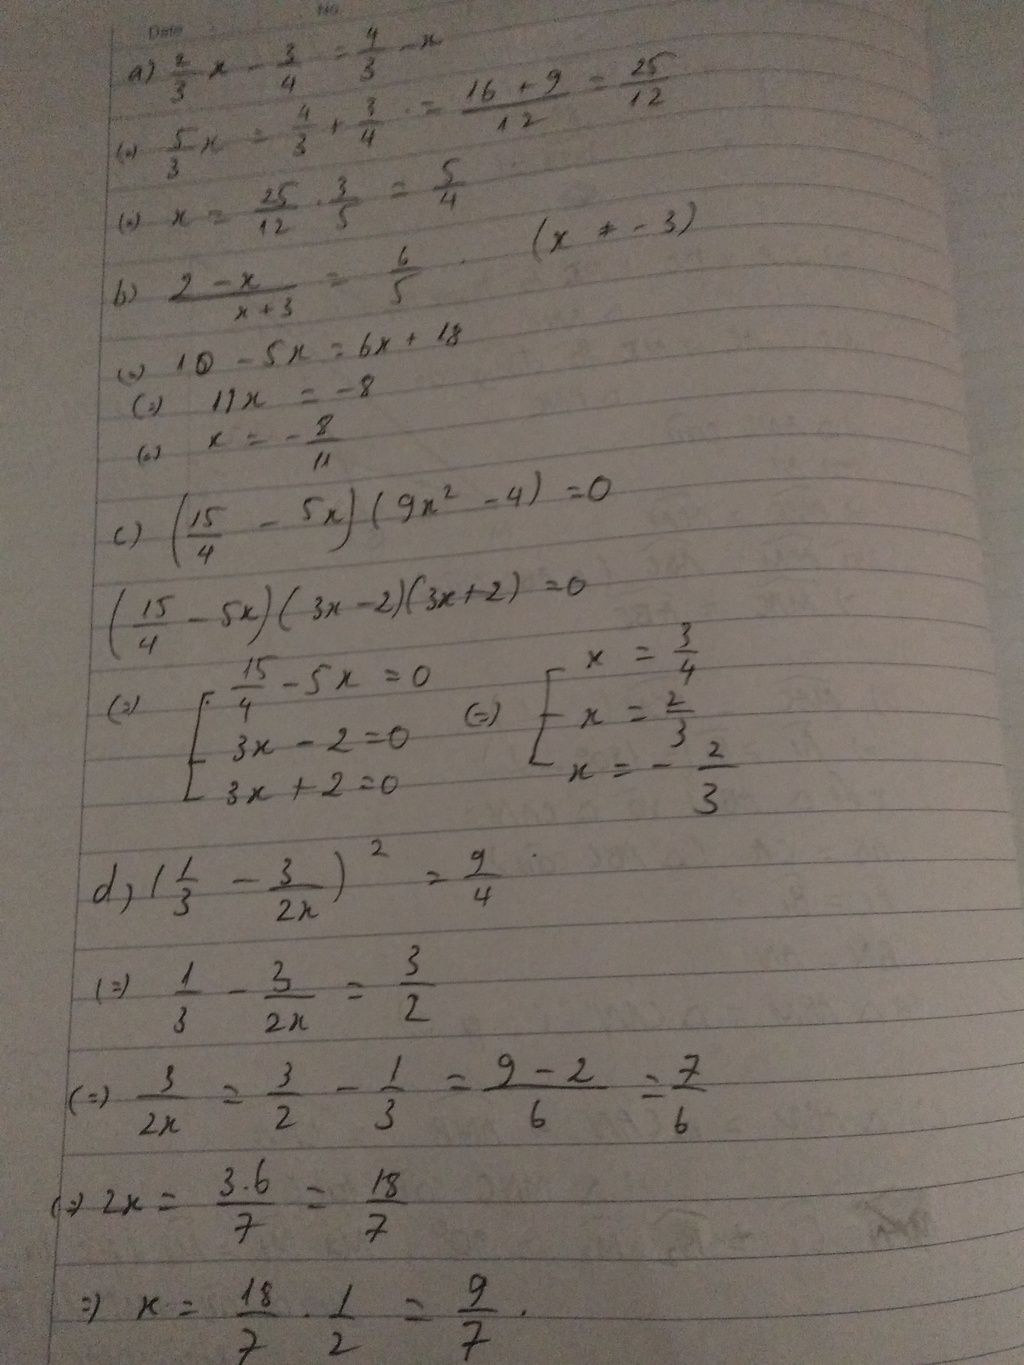 Date No
a) 2/3 x - 3/4 = 4/3 - x
(=) 5/3 x = 4/3 + 3/4 = (16 + 9)/12 = 25/12
(=) x = 25/12 . 3/5 = 5/4
b) (2 - x)/(x + 3) = 6/5 . (x ≠ - 3)
(=) 10 - 5x = 6x + 18
(=) 11x = -8
(=) x = - 8/11
c) (15/4 - 5x)(9x² - 4) = 0
(15/4 - 5x)(3x - 2)(3x + 2) = 0
(=) [ 15/4 - 5x = 0 (=) [ x = 3/4
3x - 2 = 0 x = 2/3
3x + 2 = 0 x = - 2/3
d) (1/3 - 3/2x)² = 9/4
(=) 1/3 - 3/2x = 3/2
(=) 3/2x = 3/2 - 1/3 = (9 - 2)/6 = 7/6
(=) 2x = 3.6/7 = 18/7
=) x = 18/7 . 1/2 = 9/7 .